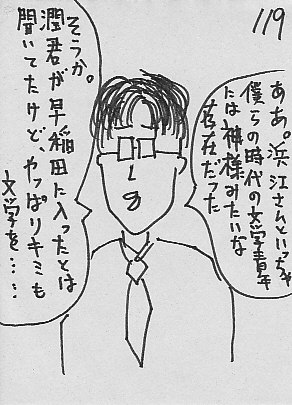 119
ああ。浜江さんといっちゃ
僕らの時代の文学青年
には神様みたいな
存在だった
そうか。
潤君が早稲田に入ったとは
聞いてたけど、やっぱりキミも
文学を……